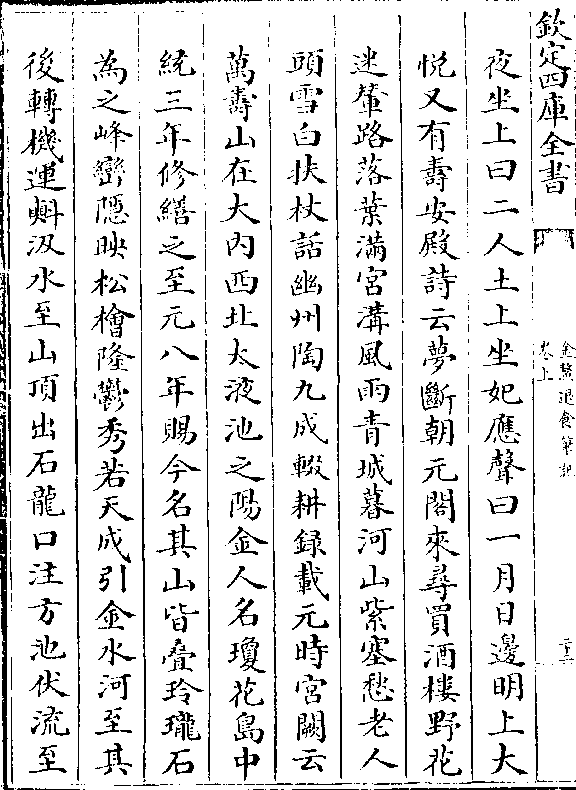 欽定四庫全書
金鰲退食筆記
卷上
夜坐上曰二人土上坐妃應聲曰一月日邊明上大
悅又有壽安殿詩云夢斷朝元閣來尋買酒樓野花
迷輦路落葉滿宮溝風雨青城暮河山紫塞愁老人
頭雪白扶杖話幽州陶九成輟耕錄載元時宮闕云
萬壽山在大內西北太液池之陽金人名瓊花島中
統三年修繕之至元八年賜今名其山皆疊玲瓏石
為之峰巒隱映松檜隆鬱秀若天成引金水河至其
後轉機運㪺汲水至山頂出石龍口注方池伏流至